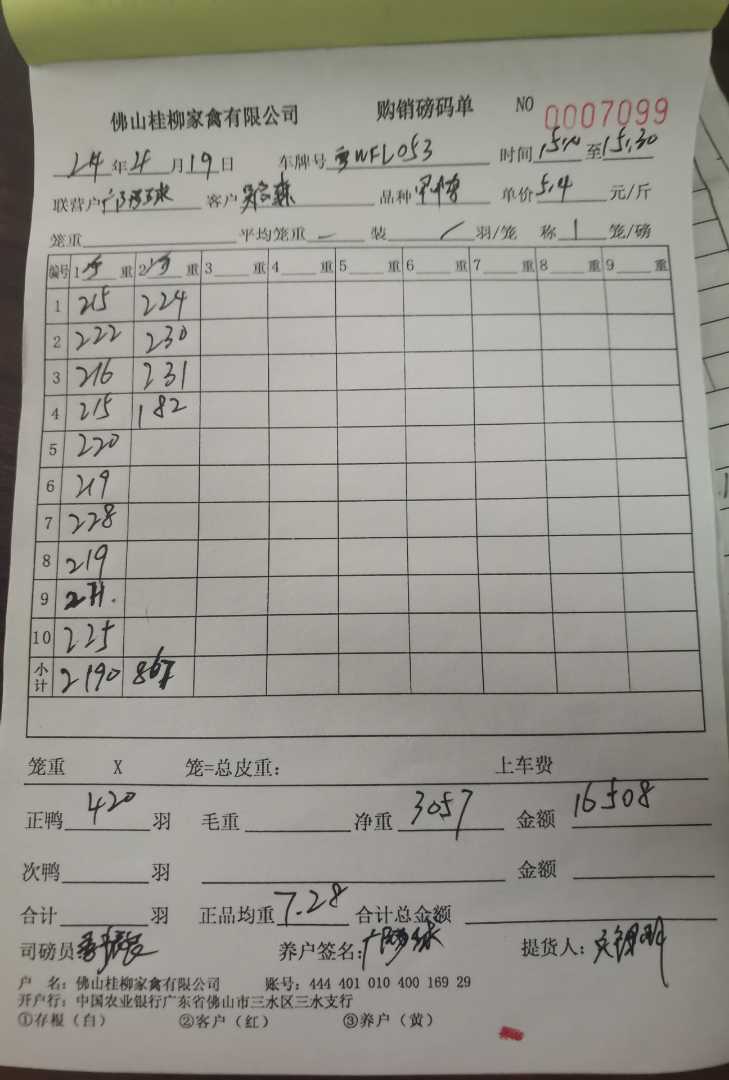 佛山桂柳家禽有限公司 购销磅码单 NO 0007099
24年4月19日 车牌号 粤WFL053 时间 15:10 至 15:30
联营户 客户 品种 单价 5.4 元/斤
笼重 平均笼重 — 装 / 羽/笼 称 1 笼/磅
编号 1 重 2 重 3 重 4 重 5 重 6 重 7 重 8 重 9 重
1 215 224
2 222 230
3 216 231
4 215 182
5 220
6 219
7 228
8 219
9
10 225
小计 2190 867
笼重 X 笼=总皮重: 上车费
正鸭 420 羽 毛重 净重 3057 金额 16508
次鸭 羽 金额
合计 羽 正品均重 7.28 合计总金额
司磅员 养户签名: 提货人:
户 名: 佛山桂柳家禽有限公司 账号: 444 401 010 400 169 29
开户行: 中国农业银行广东省佛山市三水区三水支行
①存根（白） ②客户（红） ③养户（黄）